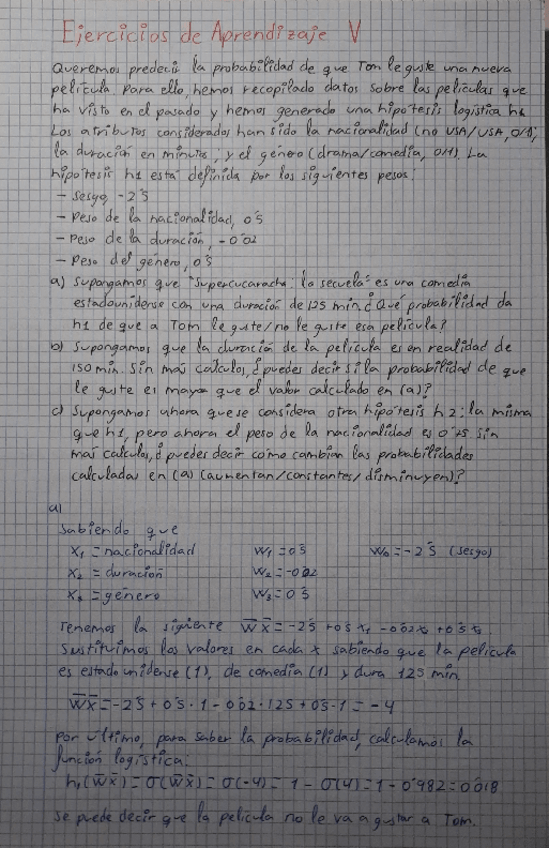 Ejercicios de Aprendizaje V
Queremos predecir la probabilidad de que Tom le guste una nueva
película. Para ello, hemos recopilado datos sobre las películas que
ha visto en el pasado y hemos generado una hipótesis logística h1.
Los atributos considerados han sido la nacionalidad (no USA/USA, 0/1),
la duración en minutos, y el género (drama/comedia, 0/1). La
hipótesis h1 está definida por los siguientes pesos:
- Sesgo, -2'5
- Peso de la nacionalidad, 0'5
- Peso de la duración, -0'02
- Peso del género, 0'5
a) Supongamos que "Supercucaracha: la secuela" es una comedia
estadounidense con una duración de 125 min. ¿Qué probabilidad da
h1 de que a Tom le guste/no le guste esa película?
b) Supongamos que la duración de la película es en realidad de
150 min. Sin más cálculo, ¿puedes decir si la probabilidad de que
le guste es mayor que el valor calculado en (a)?
c) Supongamos ahora que se considera otra hipótesis h2: la misma
que h1, pero ahora el peso de la nacionalidad es 0'75. Sin
más cálculos, ¿puedes decir cómo cambian las probabilidades
calculadas en (a) (aumentan/constantes/disminuyen)?
a)
Sabiendo que
x₁ = nacionalidad w₁ = 0'5 w₀ = -2'5 (sesgo)
x₂ = duración w₂ = -0'02
x₃ = género w₃ = 0'5
Tenemos la siguiente w̄x̄ = -2'5 + 0'5 x₁ - 0'02x₂ + 0'5 x₃.
Sustituimos los valores en cada x sabiendo que la película
es estadounidense (1), de comedia (1) y dura 125 min.
w̄x̄ = -2'5 + 0'5 · 1 - 0'02 · 125 + 0'5 · 1 = -4
Por último, para saber la probabilidad, calculamos la
función logística:
h₁(w̄x̄) = σ(w̄x̄) = σ(-4) = 1 - σ(4) = 1 - 0'982 = 0'018.
Se puede decir que la película no le va a gustar a Tom.